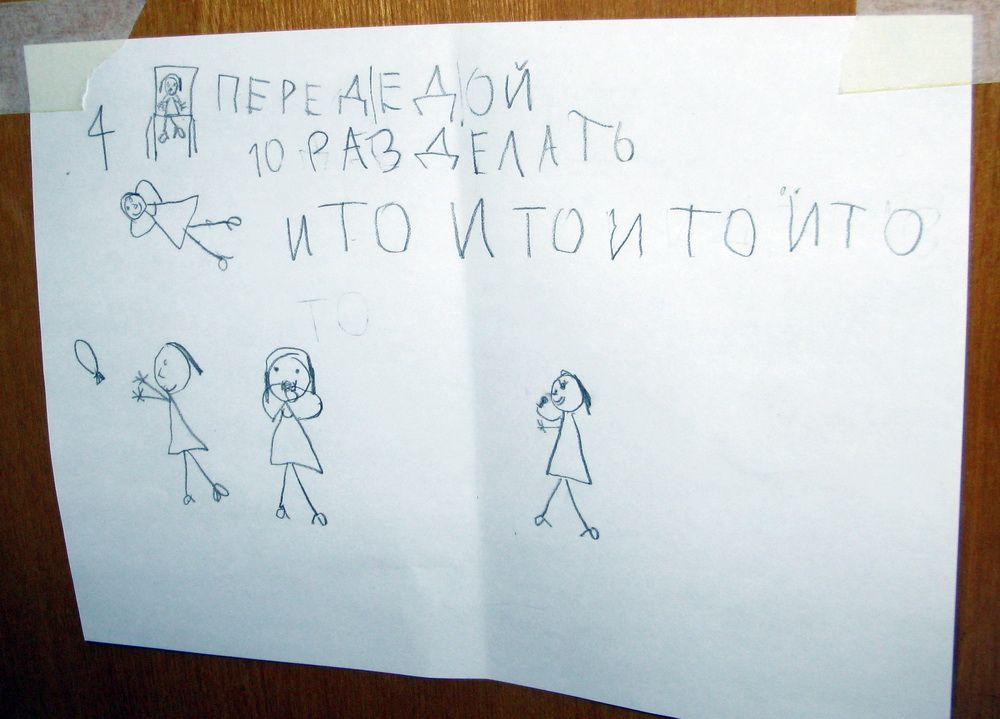 ПЕРЕ Д|Е Д|ОЙ
4 10 РАЗ ДЕЛАТЬ
И ТО И ТО И ТО ЙТО
ТО